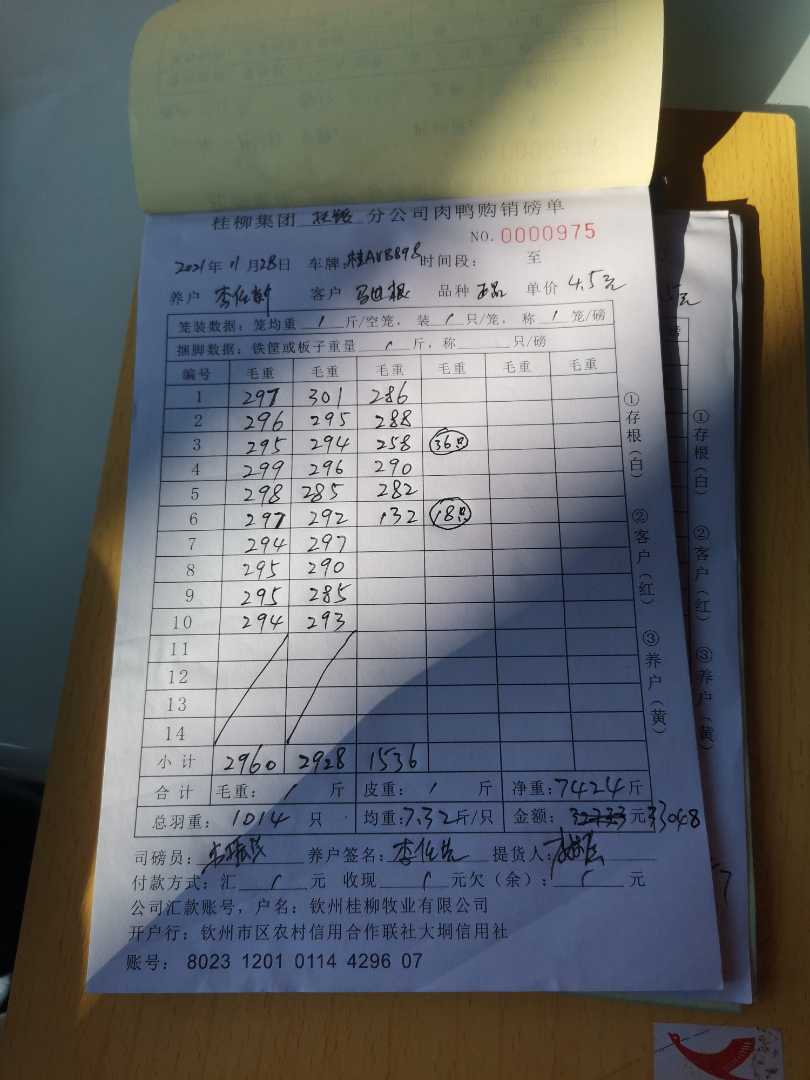 桂柳集团 分公司肉鸭购销磅单
NO. 0000975
2021年11月28日 车牌:桂AV8898 时间段: 至
养户 客户 品种 正品 单价 4.5元
笼装数据:笼均重 / 斤/空笼,装 / 只/笼,称 / 笼/磅
捆脚数据:铁筐或板子重量 / 斤,称 只/磅
编号 毛重 毛重 毛重 毛重 毛重 毛重
1 297 301 286
2 296 295 288
3 295 294 258 36只
4 299 296 290
5 298 285 282
6 297 292 132 18只
7 294 297
8 295 290
9 295 285
10 294 293
11
12
13
14
小计 2960 2928 1536
合计 毛重: / 斤 皮重: / 斤 净重:7424斤
总羽重: 1014 只 均重:7.32斤/只 金额: 元33048
司磅员: 养户签名: 提货人:
付款方式:汇 / 元 收现 / 元欠(余): / 元
公司汇款账号,户名:钦州桂柳牧业有限公司
开户行:钦州市区农村信用合作联社大垌信用社
账号: 8023 1201 0114 4296 07
①存根(白) ②客户(红) ③养户(黄)
5元
①存根(白) ②客户(红) ③养户(黄)